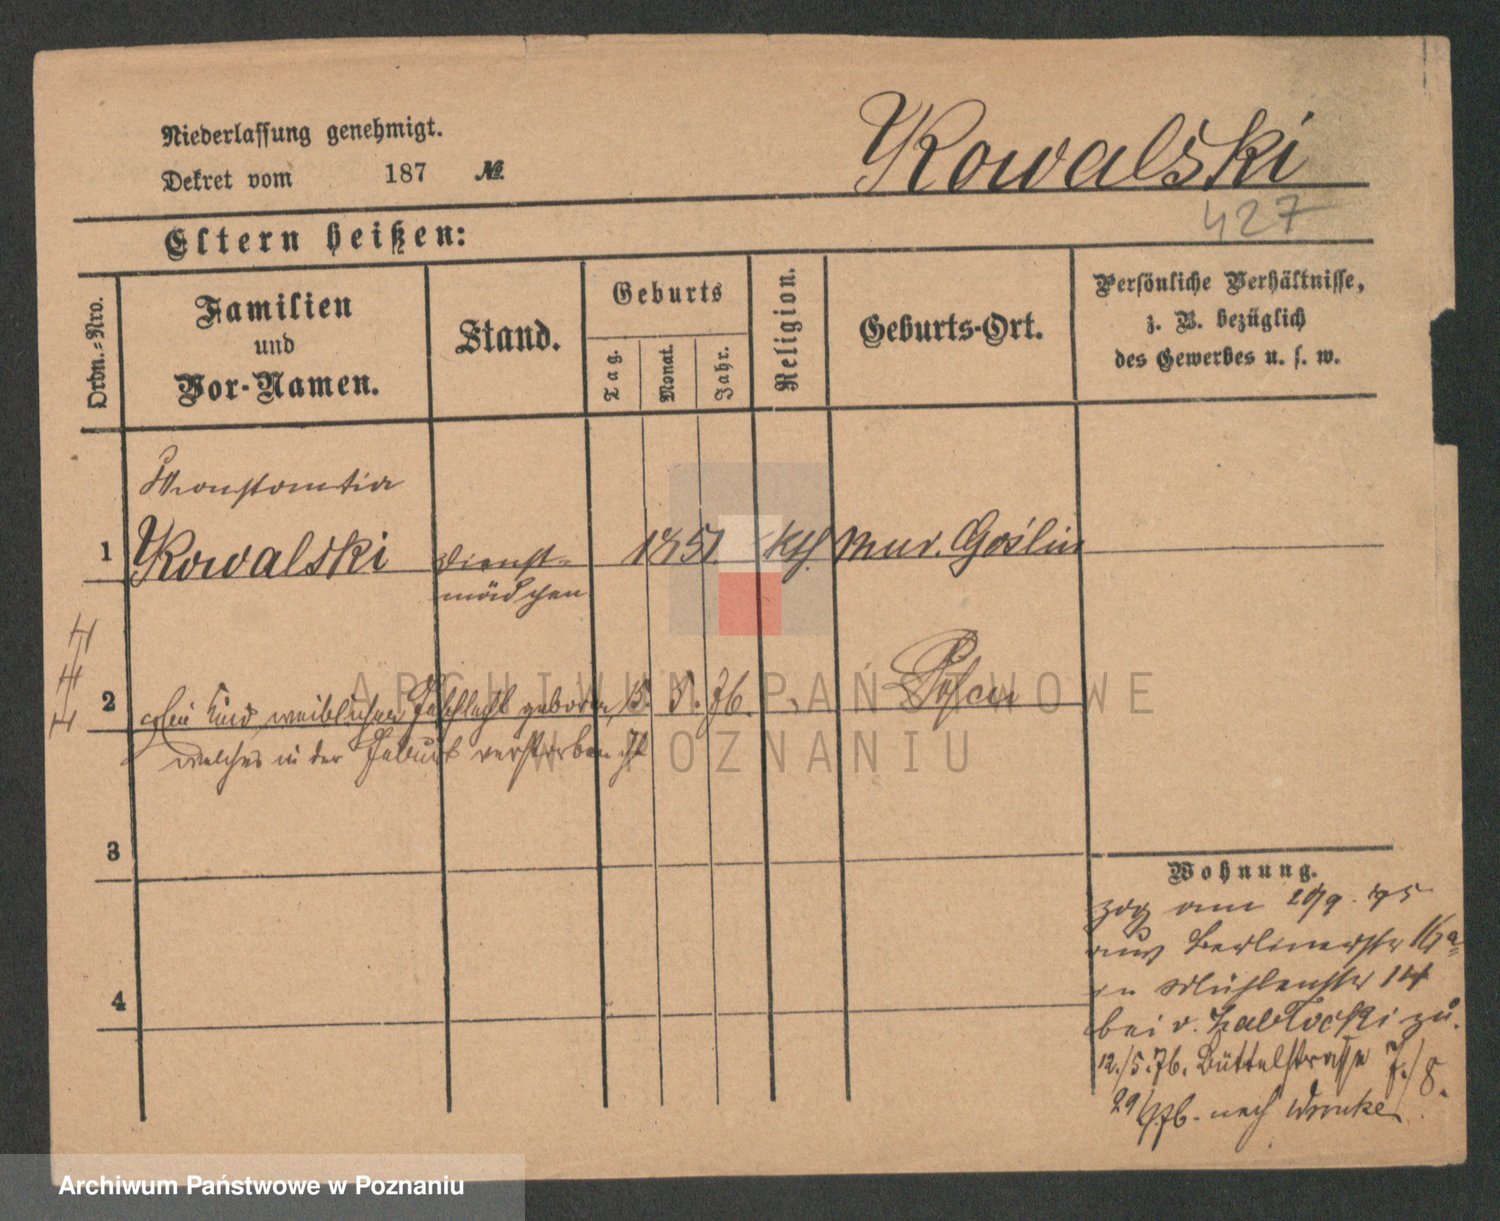 Niederlassung genehmigt.
Dekret vom 187 №
Kowalski
427
Eltern heißen:
Ordn.-Nro.
Familien
und
Vor-Namen.
Stand.
Geburts
Tag.
Monat.
Jahr.
Religion.
Geburts-Ort.
Persönliche Verhältnisse,
z. B. bezüglich
des Gewerbes u. s. w.
Konstantia
1 Kowalski Dienst= 1851. kth. Mur. Goślin
mädchen
2 Ein Kind, weiblichen Geschlecht geboren, 15. 5. 76. Posen
welches in der Geburt verstorben ist
3
4
Wohnung.
zog am 29/9. 75
aus Berlinerstr 16a
zu Mühlenstr 14
bei v. Zabłocki zu.
12./5. 76. Büttelstrasse 7./8.
29/ 76. nach Wronke
ARCHIWUM PAŃSTWOWE
W POZNANIU
Archiwum Państwowe w Poznaniu